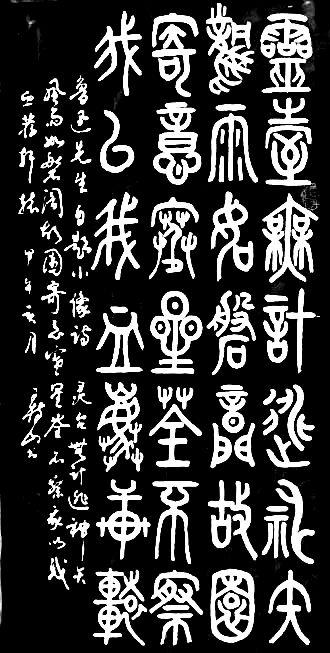 靈臺無計逃神矢
風雨如磐闇故園
寄意寒星荃不察
我以我血薦軒轅
魯迅先生自題小像詩 灵台無计逃神矢
風雨如磐闇故園寄意寒星荃不察我以我
血薦軒轅 甲午 月 书